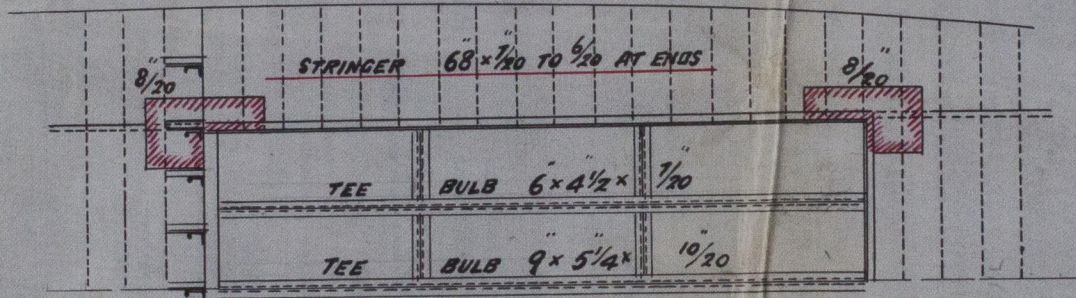 STRINGER 68" × 7/20 TO 6/20 AT ENDS
8/20"
8/20"
TEE BULB 6" × 4 1/2" × 7/20"
TEE BULB 9" × 5 1/4" × 10/20"